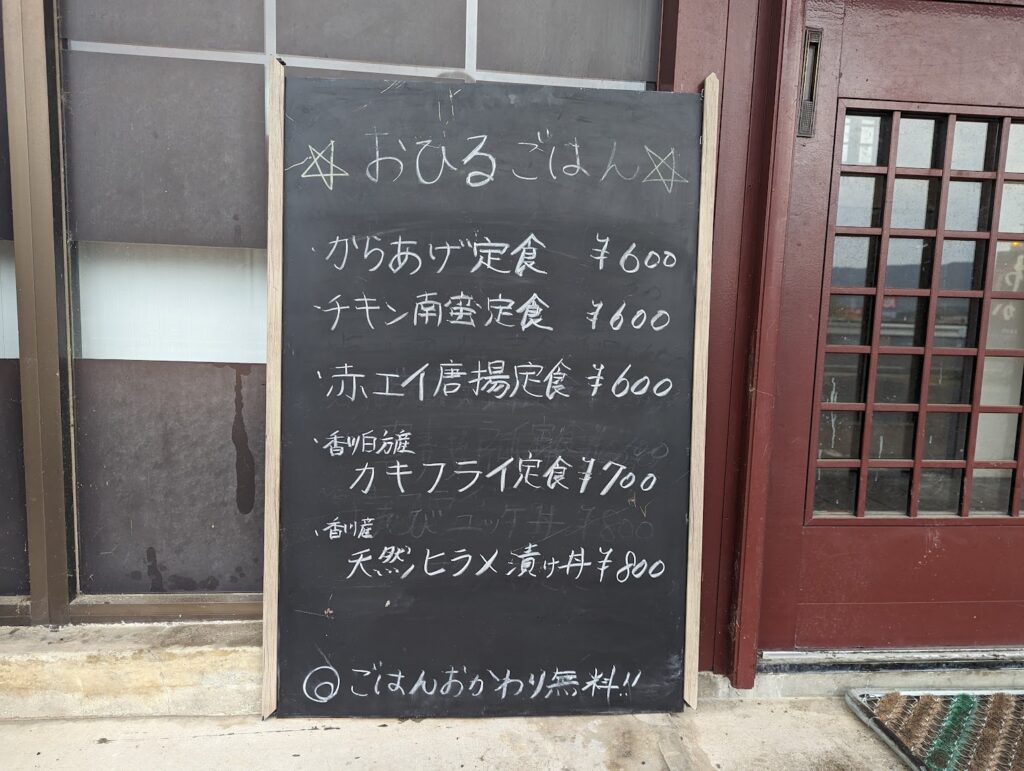 ☆おひるごはん☆
・からあげ定食 ¥600
・チキン南蛮定食 ¥600
・赤エイ唐揚定食 ¥600
・香川白方産
カキフライ定食 ¥700
・香川産
天然ヒラメ漬け丼 ¥800
◎ごはんおかわり無料!!